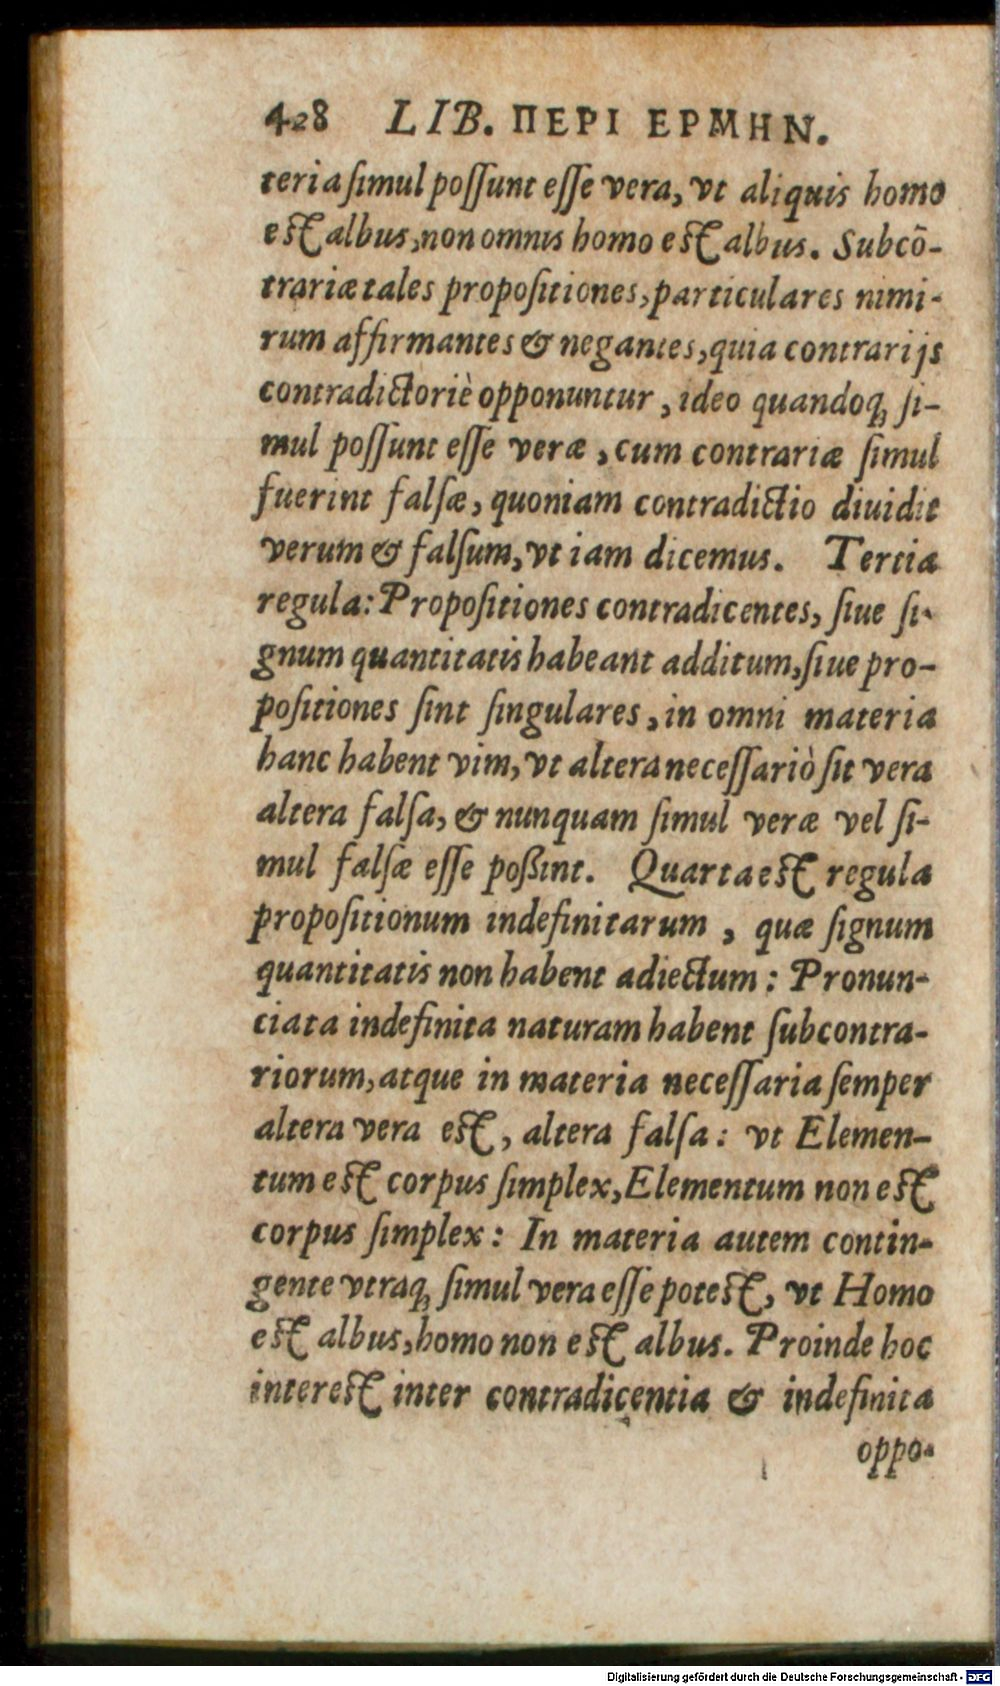 428 LIB. ΠΕΡΙ ΕΡΜΗΝ.
teria simul possunt esse vera, vt aliquis homo
est albus, non omnis homo est albus. Subcõ-
trariæ tales propositiones, particulares nimi-
rum affirmantes & negantes, quia contrarijs
contradictoriè opponuntur, ideo quandoq; si-
mul possunt esse veræ, cum contrariæ simul
fuerint falsæ, quoniam contradictio diuidit
verum & falsum, vt iam dicemus. Tertia
regula: Propositiones contradicentes, siue si-
gnum quantitatis habeant additum, siue pro-
positiones sint singulares, in omni materia
hanc habent vim, vt altera necessariò sit vera
altera falsa, & nunquam simul veræ vel si-
mul falsæ esse poßint. Quarta est regula
propositionum indefinitarum, quæ signum
quantitatis non habent adiectum: Pronun-
ciata indefinita naturam habent subcontra-
riorum, atque in materia necessaria semper
altera vera est, altera falsa: vt Elemen-
tum est corpus simplex, Elementum non est
corpus simplex: In materia autem contin-
gente vtraq; simul vera esse potest, vt Homo
est albus, homo non est albus. Proinde hoc
interest inter contradicentia & indefinita
oppo-
Digitalisierung gefördert durch die Deutsche Forschungsgemeinschaft - DFG